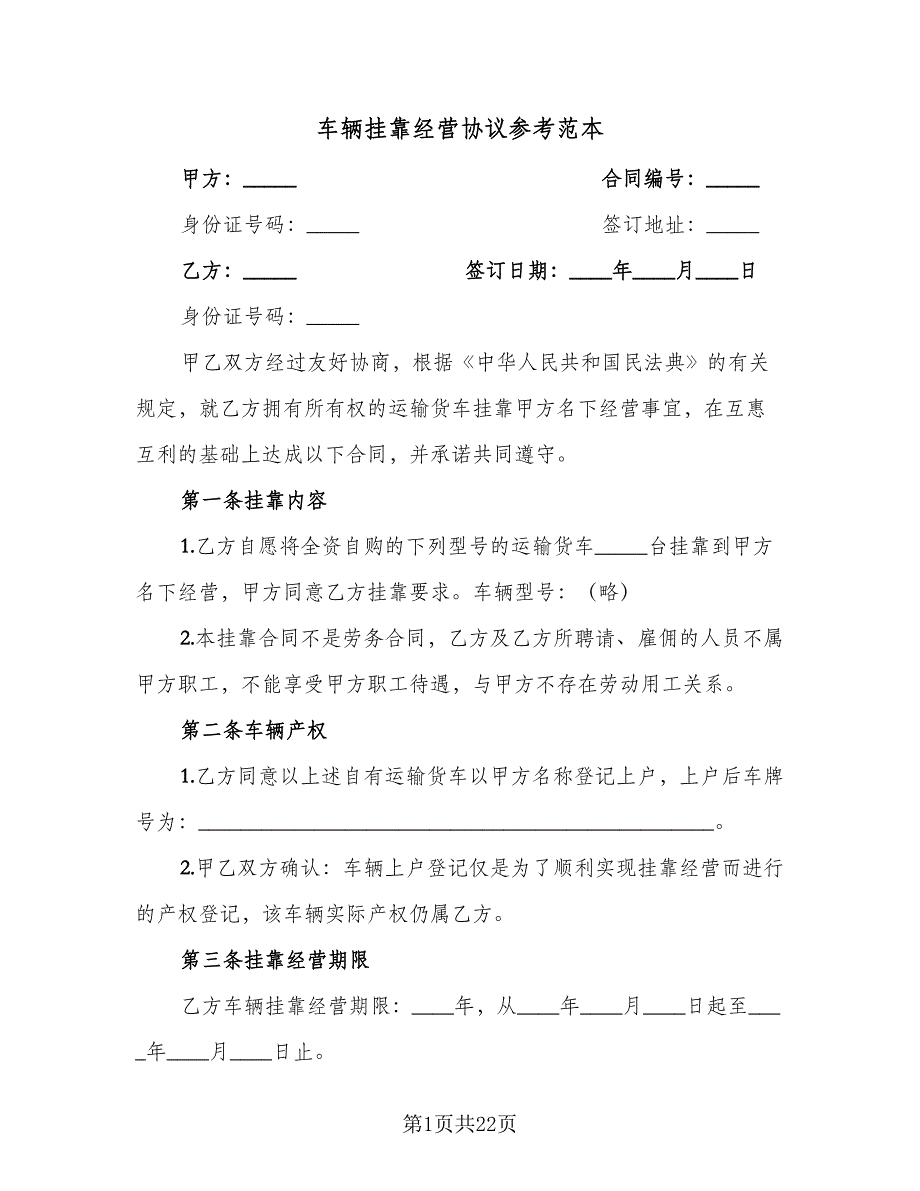 车辆挂靠经营协议参考范本
甲方：_____ 合同编号：_____
身份证号码：_____ 签订地址：_____
乙方：_____ 签订日期：____年____月____日
身份证号码：_____
甲乙双方经过友好协商，根据《中华人民共和国民法典》的有关
规定，就乙方拥有所有权的运输货车挂靠甲方名下经营事宜，在互惠
互利的基础上达成以下合同，并承诺共同遵守。
第一条挂靠内容
1.乙方自愿将全资自购的下列型号的运输货车_____台挂靠到甲方
名下经营，甲方同意乙方挂靠要求。车辆型号：（略）
2.本挂靠合同不是劳务合同，乙方及乙方所聘请、雇佣的人员不属
甲方职工，不能享受甲方职工待遇，与甲方不存在劳动用工关系。
第二条车辆产权
1.乙方同意以上述自有运输货车以甲方名称登记上户，上户后车牌
号为：_________________________________________________。
2.甲乙双方确认：车辆上户登记仅是为了顺利实现挂靠经营而进行
的产权登记，该车辆实际产权仍属乙方。
第三条挂靠经营期限
乙方车辆挂靠经营期限：____年，从____年____月____日起至___
_年____月____日止。
第1页共22页